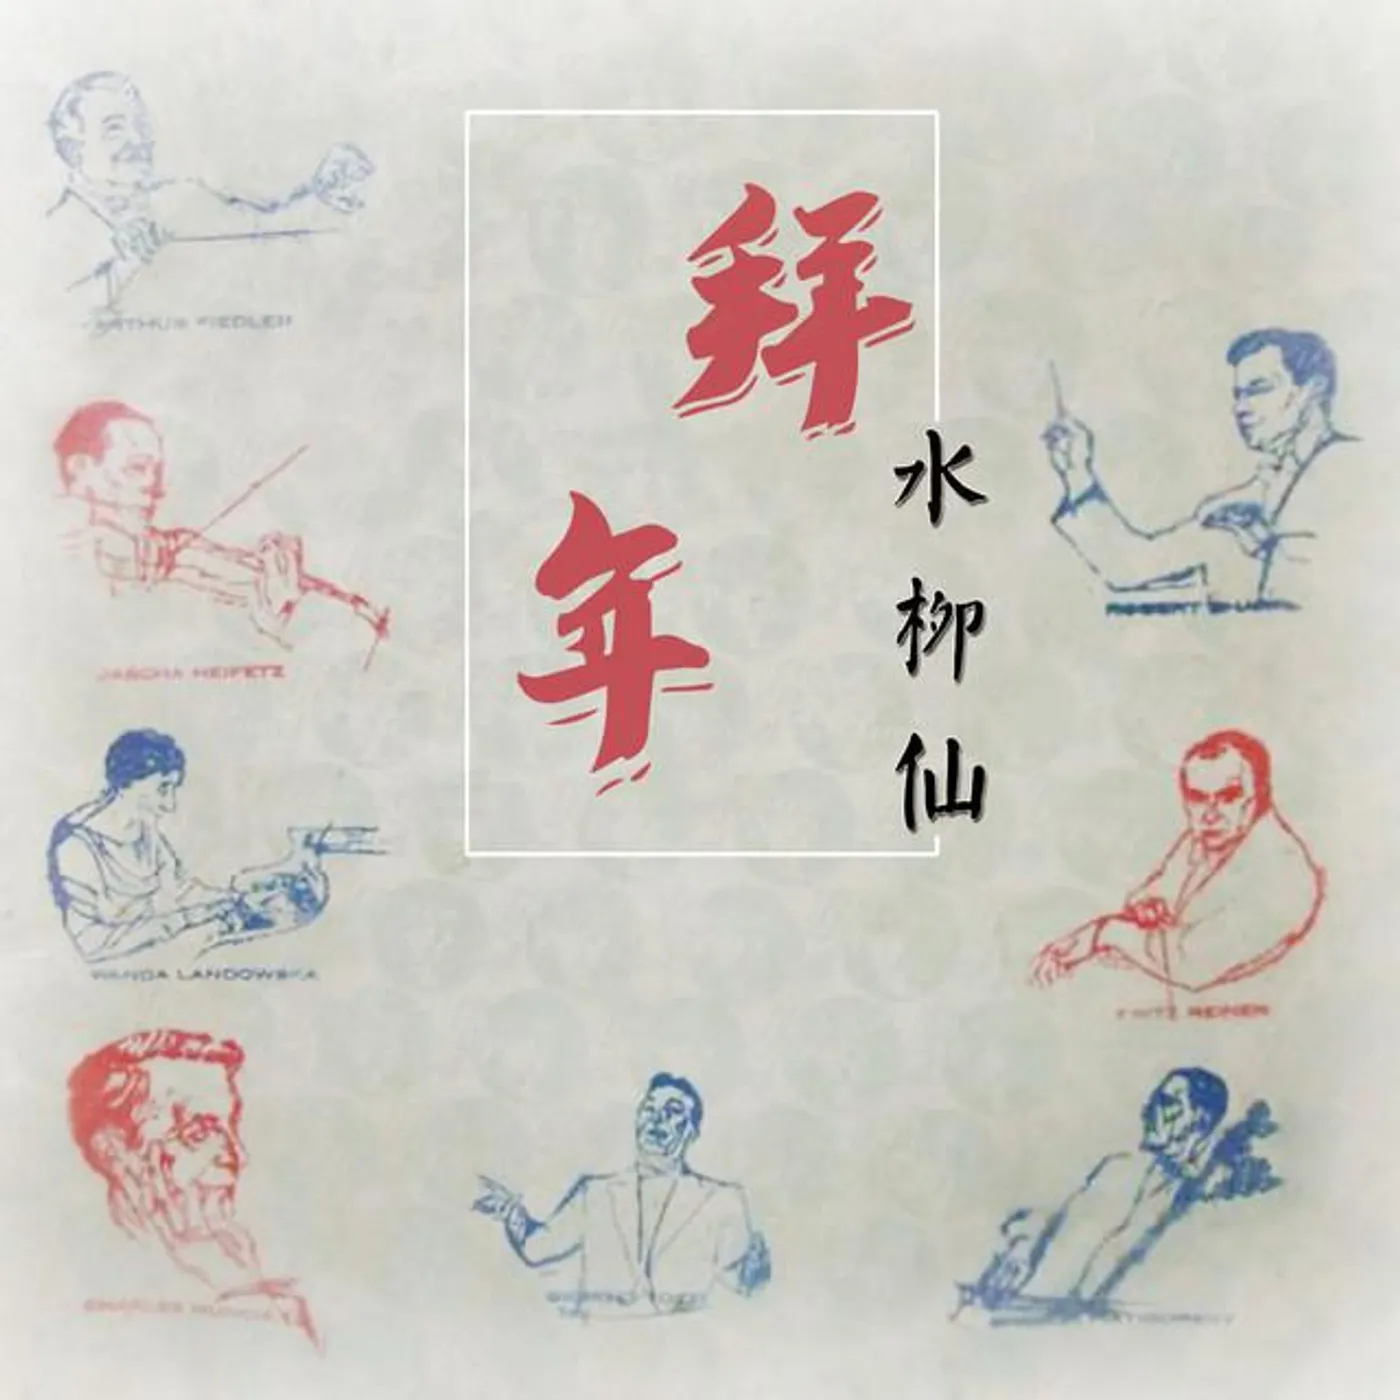 拜年
水柳仙
ARTHUR FIEDLER
JASCHA HEIFETZ
WANDA LANDOWSKA
FRITZ REINER
CHARLES MUNCH
ROBERT SHAW
PIATIGORSKY